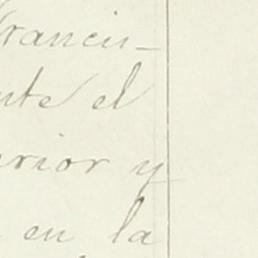 Francis-
nte el
erior y
en la